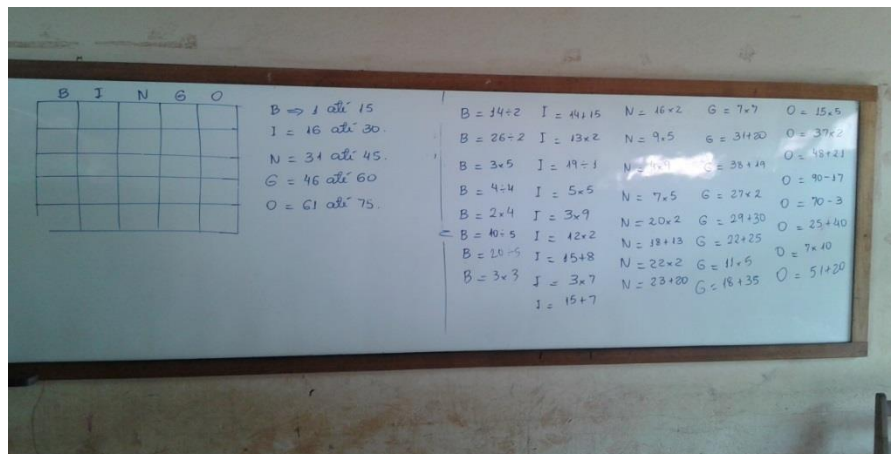 B I N G O
B ⇒ 1 até 15
I = 16 até 30.
N = 31 até 45.
G = 46 até 60
O = 61 até 75.
B = 14÷2
B = 26÷2
B = 3x5
B = 4÷4
B = 2x4
B = 10-5
B = 20-5
B = 3x3
I = 14+15
I = 13x2
I = 19÷1
I = 5x5
I = 3x9
I = 12x2
I = 15+8
I = 3x7
I = 15+7
N = 16x2
N = 9x5
N = 4x9
N = 7x5
N = 20x2
N = 18+13
N = 22x2
N = 23+20
G = 7x7
G = 31+20
G = 38+19
G = 27x2
G = 29+30
G = 22+25
G = 11x5
G = 18+35
O = 15x5
O = 37x2
O = 48+21
O = 90-17
O = 70-3
O = 25+40
O = 7x10
O = 51+20